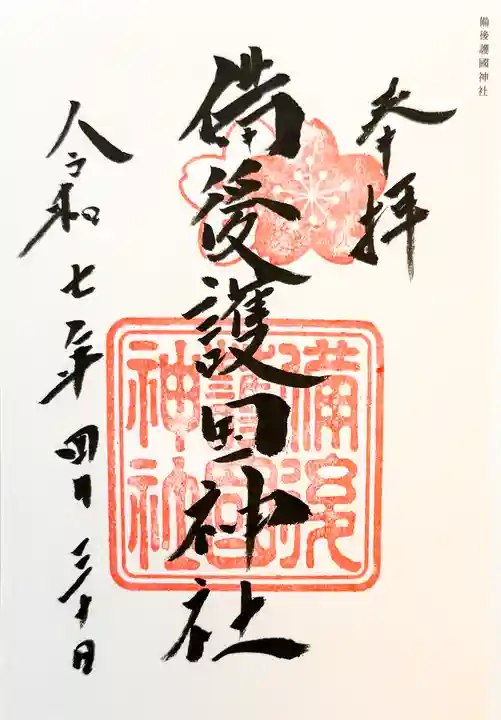 備後護國神社
奉拝
備後護国神社
備後
護國
神社
令和七年四月三十日